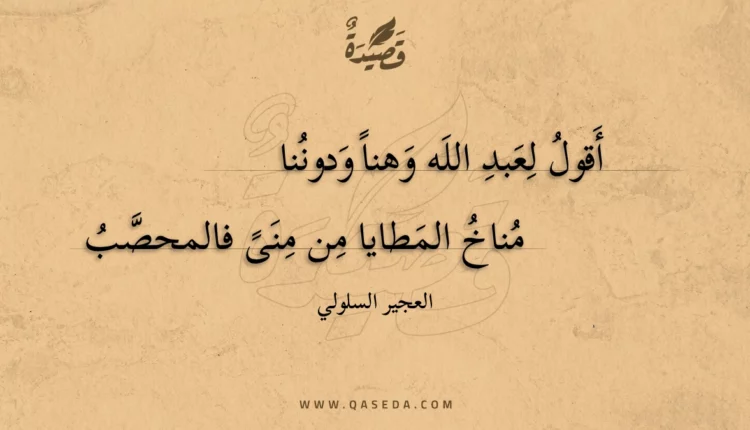 قَصِيْدَةٌ
أَقولُ لِعَبدِ اللَه وَهناً وَدونُنا
مُناخُ المَطايا مِن مِنَىً فالمحصَّبُ
العجير السلولي
WWW.QASEDA.COM